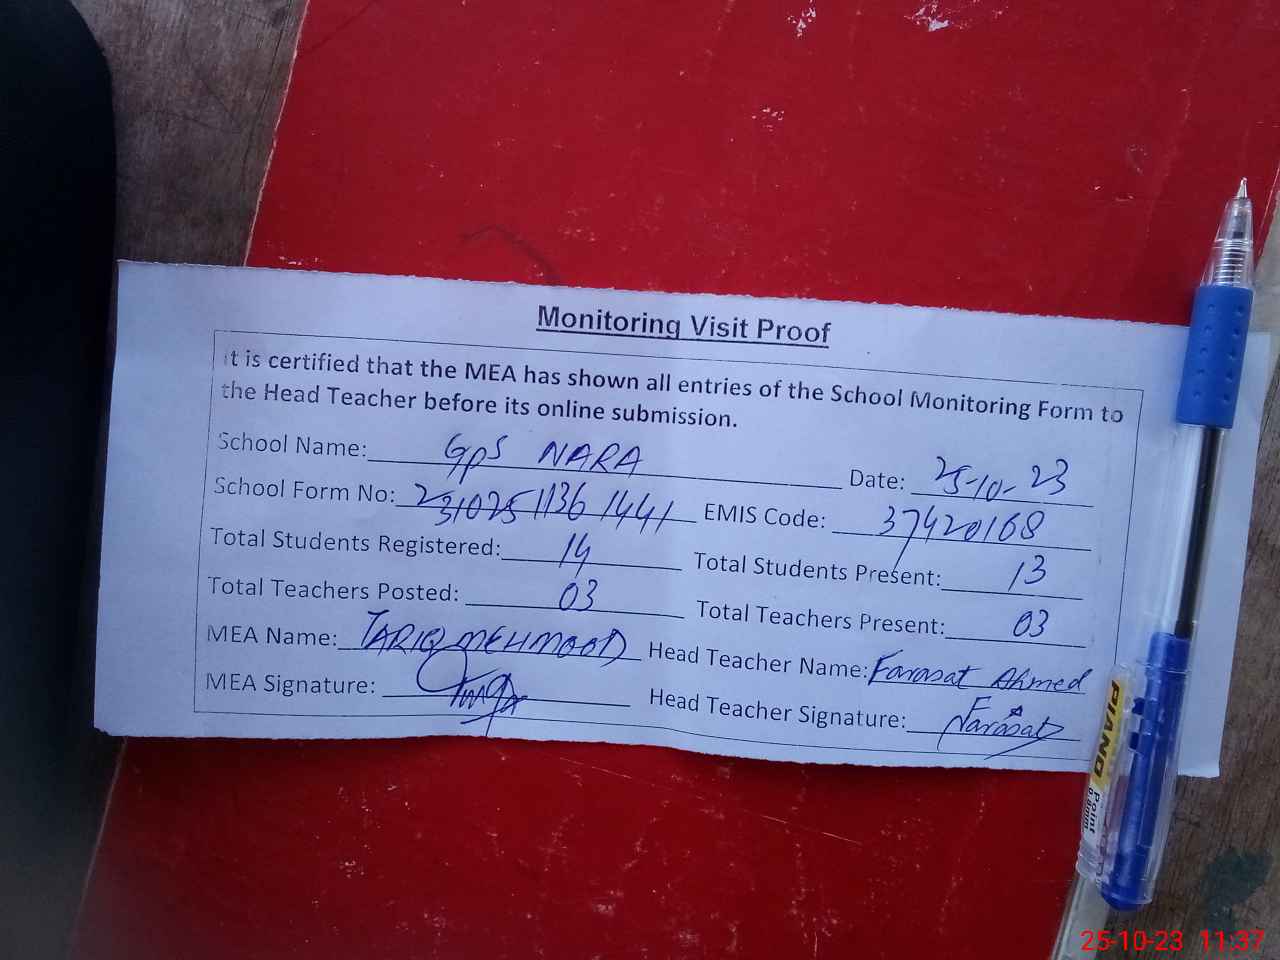 Monitoring Visit Proof
It is certified that the MEA has shown all entries of the School Monitoring Form to
the Head Teacher before its online submission.
School Name: GPS NARA Date: 25-10-23
School Form No: 2310251136 1441 EMIS Code: 37420168
Total Students Registered: 14 Total Students Present: 13
Total Teachers Posted: 03 Total Teachers Present: 03
MEA Name: TARIQ MEHMOOD Head Teacher Name: Farasat Ahmed
MEA Signature: Head Teacher Signature: Farasat
PIANO
Point
0.8mm
25-10-23 11:37